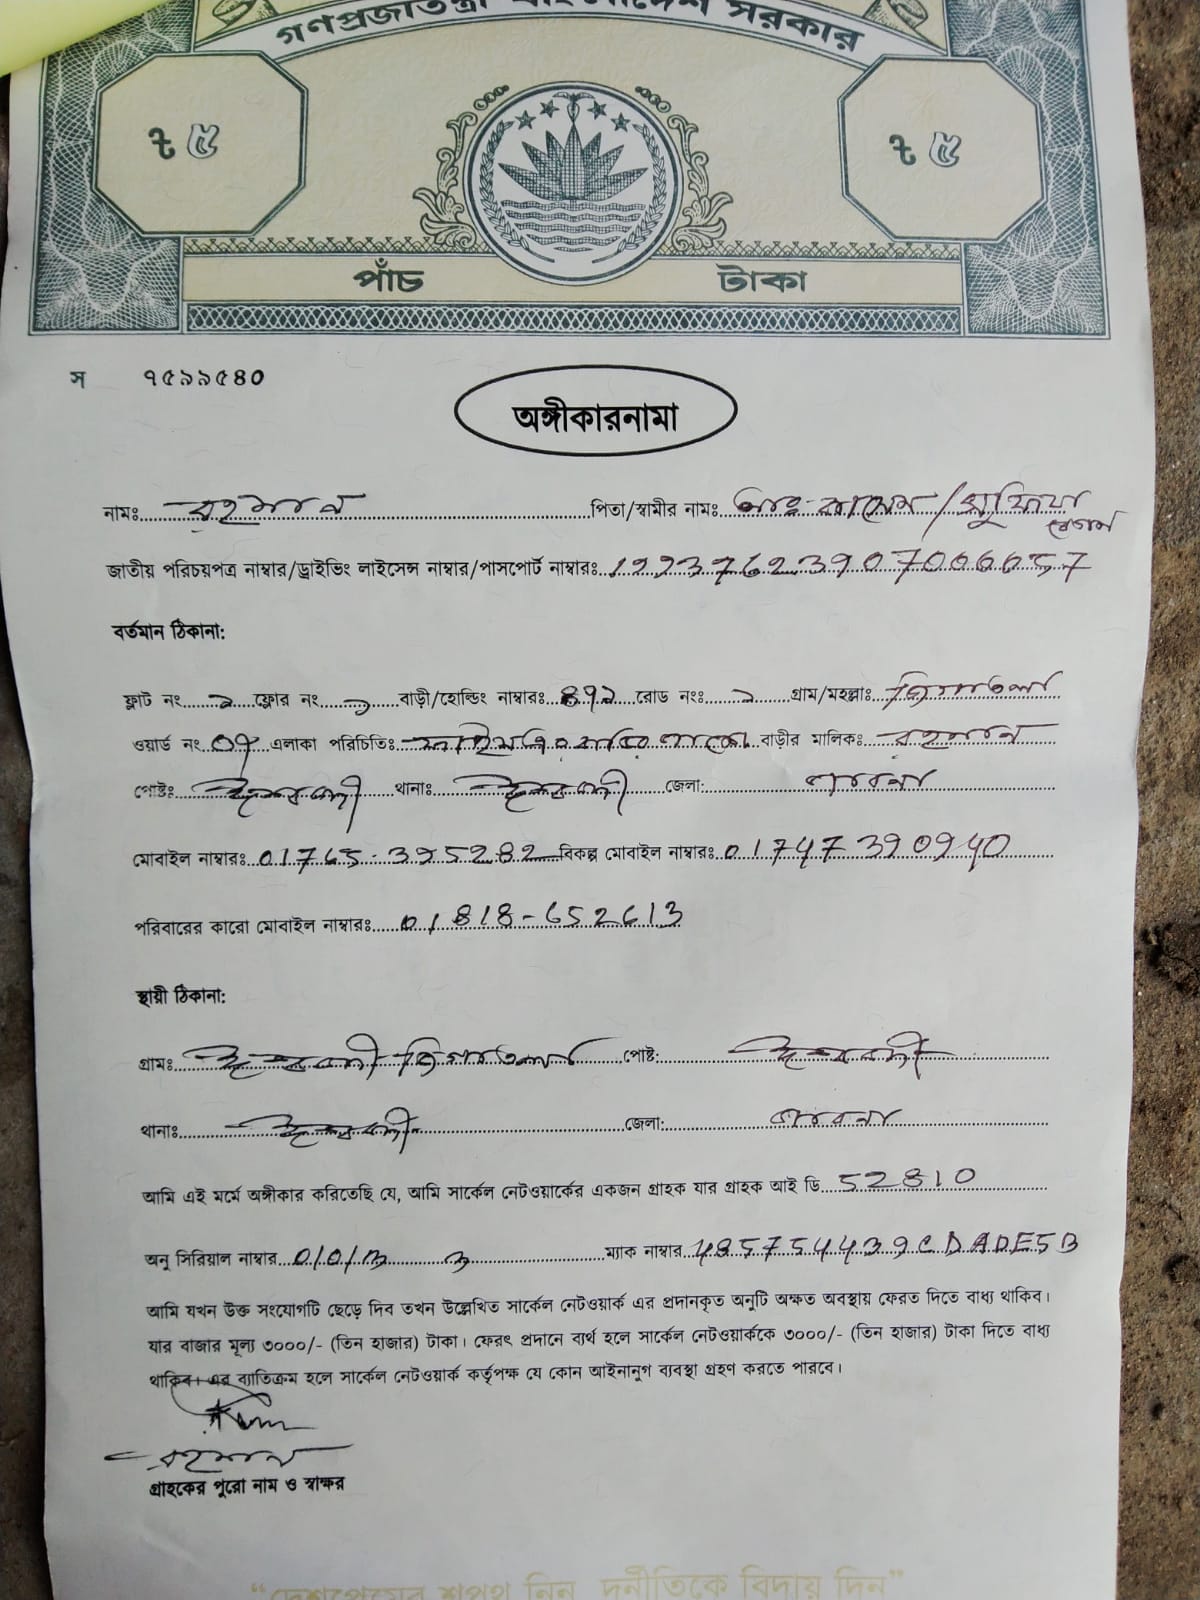 গণপ্রজাতন্ত্রী বাংলাদেশ সরকার
৳ ৫ ৳ ৫
পাঁচ টাকা
স ৭৫৯৯৫৪০
অঙ্গীকারনামা
নামঃ রহমান পিতা/স্বামীর নামঃ কাসেম / সুফিয়া
বেগম
জাতীয় পরিচয়পত্র নাম্বার/ড্রাইভিং লাইসেন্স নাম্বার/পাসপোর্ট নাম্বারঃ
বর্তমান ঠিকানা:
ফ্লাট নং ফ্লোর নং বাড়ী/হোল্ডিং নাম্বারঃ রোড নংঃ গ্রাম/মহল্লাঃ
ওয়ার্ড নং ০৭ এলাকা পরিচিতিঃ বাড়ীর মালিকঃ রহমান
পোষ্টঃ ঈশ্বরদী থানাঃ ঈশ্বরদী জেলা: পাবনা
মোবাইল নাম্বারঃ 01765-395282 বিকল্প মোবাইল নাম্বারঃ
পরিবারের কারো মোবাইল নাম্বারঃ 01818-652613
স্থায়ী ঠিকানা:
গ্রামঃ ঈশ্বরদী পোষ্ট: ঈশ্বরদী
থানাঃ ঈশ্বরদী জেলা: পাবনা
আমি এই মর্মে অঙ্গীকার করিতেছি যে, আমি সার্কেল নেটওয়ার্কের একজন গ্রাহক যার গ্রাহক আই ডি 52810
অনু সিরিয়াল নাম্বার ম্যাক নাম্বার 485754439CDADE5B
আমি যখন উক্ত সংযোগটি ছেড়ে দিব তখন উল্লেখিত সার্কেল নেটওয়ার্ক এর প্রদানকৃত অনুটি অক্ষত অবস্থায় ফেরত দিতে বাধ্য থাকিব।
যার বাজার মূল্য ৩০০০/- (তিন হাজার) টাকা। ফেরৎ প্রদানে ব্যর্থ হলে সার্কেল নেটওয়ার্ককে ৩০০০/- (তিন হাজার) টাকা দিতে বাধ্য
থাকিব। এর ব্যাতিক্রম হলে সার্কেল নেটওয়ার্ক কর্তৃপক্ষ যে কোন আইনানুগ ব্যবস্থা গ্রহণ করতে পারবে।
রহমান
গ্রাহকের পুরো নাম ও স্বাক্ষর
“দেশপ্রেমের শপথ নিন দুর্নীতিকে বিদায় দিন”